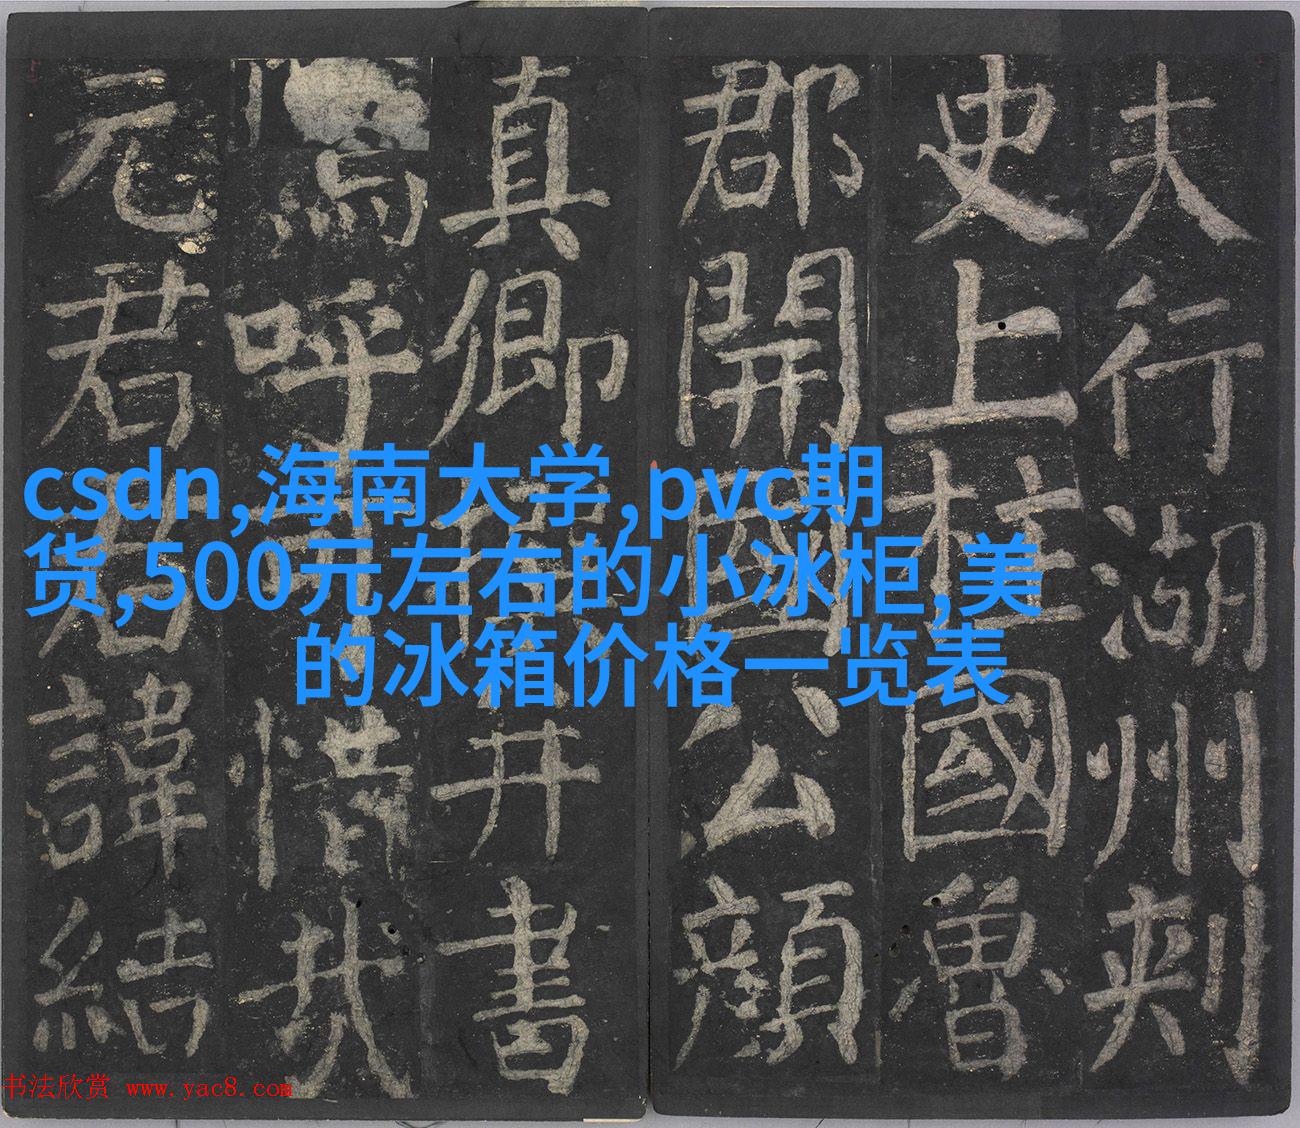 夫行湖州刺
史上柱國魯
郡開國公顏
真卿撰并書
嗚呼可惜哉
元君君諱結
csdn,海南大学,pvc期
货,500元左右的小冰柜,美
的冰箱价格一览表
书法欣赏 www.yac8.com